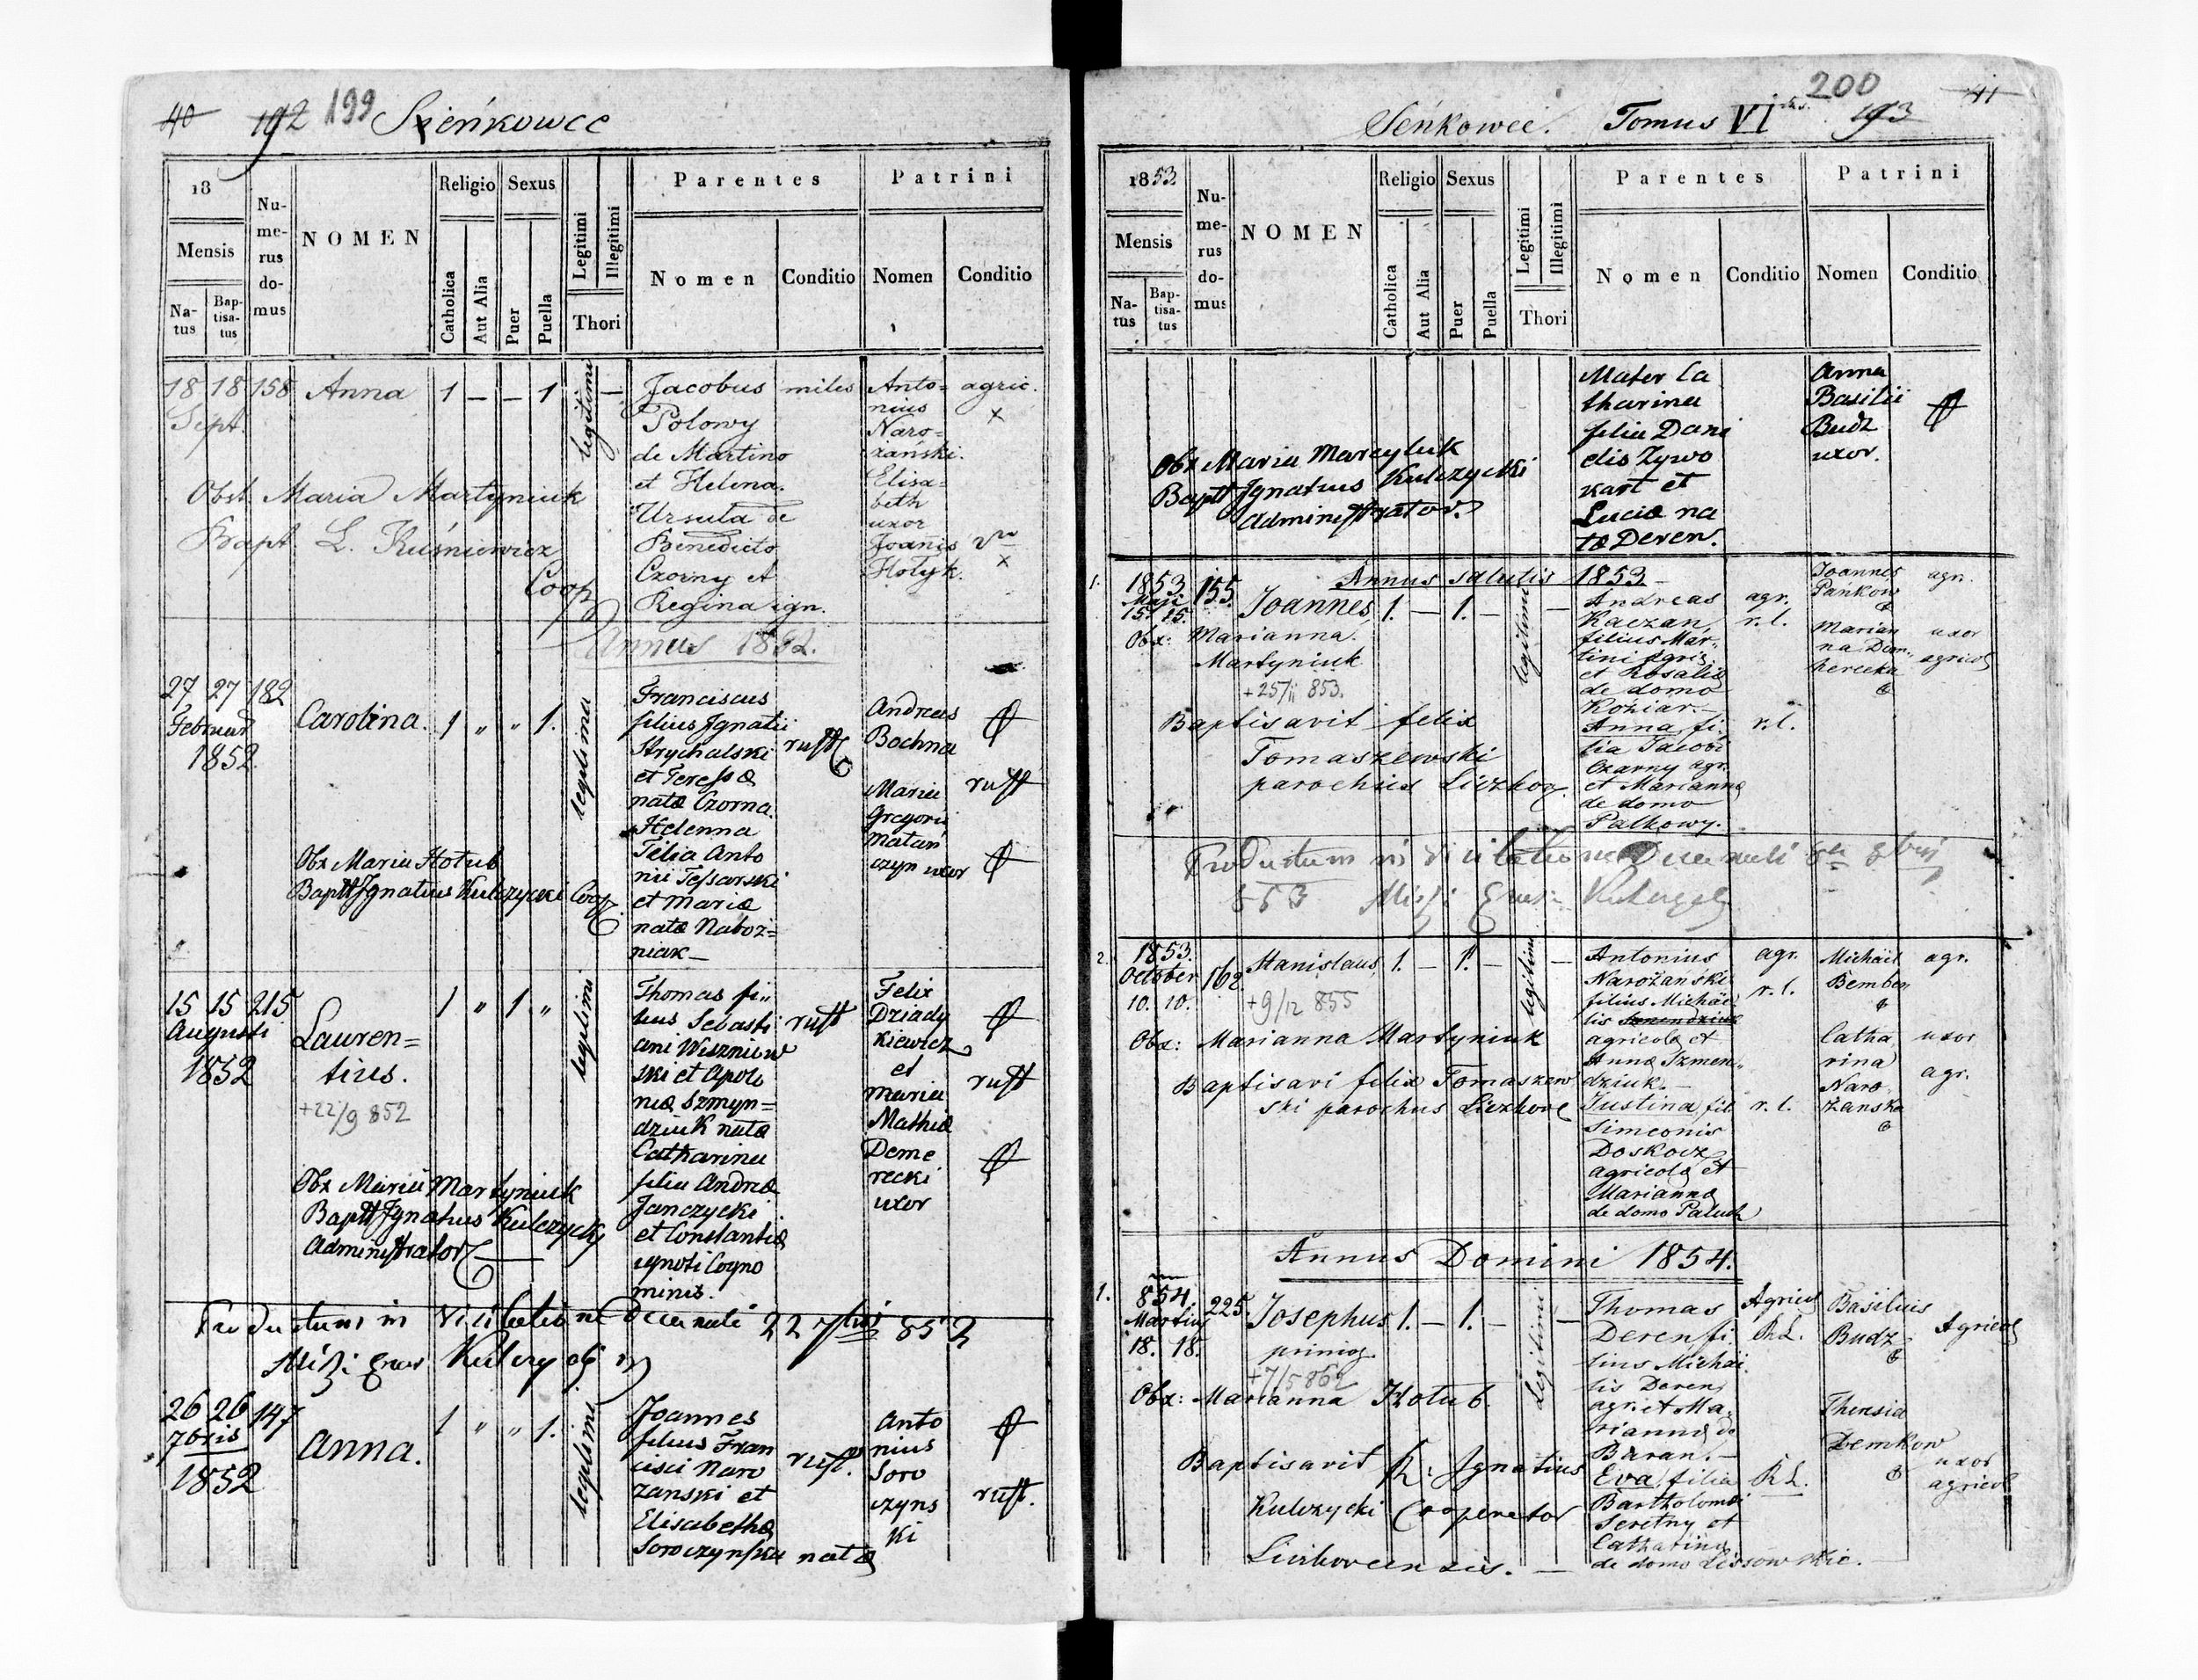 40 192 199 Sieńkowce
18
Mensis
Na-
tus
Bap-
tisa-
tus
Nu-
me-
rus
do-
mus
NOMEN
Religio
Catholica
Aut Alia
Sexus
Puer
Puella
Legitimi
Illegitimi
Thori
Parentes
Nomen
Conditio
Patrini
Nomen
Conditio
18 18 158 Anna 1 — — 1 legitimi —
Sept.
Jacobus miles
Polowy
de Martino
et Helena.
Ursula de
Benedicto
Czorny et
Regina ign.
Anto=
nius
Naro=
zański.
Elisa=
beth
uxor
Joanis
Hołyk.
agric.
x
x
Obst. Maria Martyniuk
Bapt. L. Kuśniewicz
Coop
Annus 1852.
27 27 182
Februar
1852.
Carolina. 1 " " 1. legitima
Franciscus
filius Ignatii
Strychalski
etTeressæ
natæ Czorna.
Helenna
filia Anto
nii Tessarski
et Mariæ
natæ Naboż=
niak —
rust
Andreas
Bochna
Maria
Gregorii
Matan
czyn uxor
rust
Obx Maria Hotub
Baptt Ignatius Kulczycki Coop
15 15 215
Augusti
1852
Lauren=
tius.
+22/9 852
1 " 1 " legitimi
Thomas fi"
lius Sebasti
ani Wiszniew
ski et Apolo
niæ Szmyn=
dziuk natæ
Catharina
filia Andreæ
Janczycki
et Constantiæ
ignoti Cogno
minis.
rust
Felix
Dziady
kiewicz
et
Maria
Mathiæ
Deme
recki
uxor
rust
Obx Maria Martyniuk
Baptt Ignatius Kulczycky
Administrator
Productum in visitatione Decanali 22 7bris 852
26 26 147
7bris
1852
Anna. 1 " " 1. legitimi
Joannes
filius Fran
cisci Naro
zanski et
Elisabethæ
Soroczynska natæ
rust.
Anto
nius
Soro
czyns
ki
rust.
200
Seńkowce. Tomus VI 193 41
1853
Mensis
Na-
tus
Bap-
tisa-
tus
Nu-
me-
rus
do-
mus
NOMEN
Religio
Catholica
Aut Alia
Sexus
Puer
Puella
Legitimi
Illegitimi
Thori
Parentes
Nomen
Conditio
Patrini
Nomen
Conditio
Mater Ca
tharina
filia Dani
elis Zywo
kart et
Luciæ na
tæ Deren.
Anna
Basilii
Budz
uxor.
Obx Maria Marcyluk
Baptt Ignatius Kulczycki
Administrator.
Annus salutis 1853 —
1.
1853
Maji
15. 15.
155.
Joannes, 1. — 1. — legitimi —
Andreas
Kaczan,
filius Mar-
tini agric.
et Rosaliæ
de domo
Koniar. —
Anna, fi-
lia Jacobi
Czarny agr.
et Mariannæ
de domo
Palkowy.
agr.
r. l.
r. l.
Joannes
Pańkow
Marian
na Dem-
herecka
agr.
uxor
agricolæ
Obx: Marianna
Martyniuk
+25/ii 853.
Baptisavit felix
Tomaszewski
parochus
Productum in visitatione Decanali
853
2.
1853.
October
10. 10.
162
Stanislaus, 1. — 1. — legitimi —
+9/12 855
Antonius
Narożański
filius Michäe
lis
agricolæ et
Annæ Szmen-
dziuk. —
Justina, fil.
Simeonis
Doskocz,
agricolæ et
Mariannæ
de domo Paluch
agr.
r. l.
r. l.
Michäel
Bemben
Catha
rina
Naro
żanska
agr.
uxor
agr.
Obx: Marianna Martyniuk
Baptisavi felix Tomaszew
ski parochus
Annus Domini 1854.
1.
854.
Martius
18. 18.
225.
Josephus 1. — 1. — Legitimi —
primog.
+7/5 862
Thomas
Deren, fi-
lius Michae
lis Deren,
agr. et Ma-
riannæ de
Baran. —
Eva, filia
Bartholomæi
Seretny et
Catharinæ
de domo Lissowskie.
Agricol
R.L.
R.L.
Basilius
Budz
Theresia
Demkow
Agricol
uxor
agricol
Obx: Marianna Hotub.
Baptisavit R: Ignatius
Kulczycki Cooperator